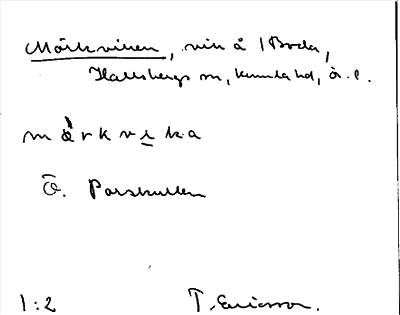 Mörkviken, vik å 1 Boda,
Hallsbergs sn, Kumla hd, Ö. l.
mörkvika
Ö. Porskullen
1:2 T. Ericsson.